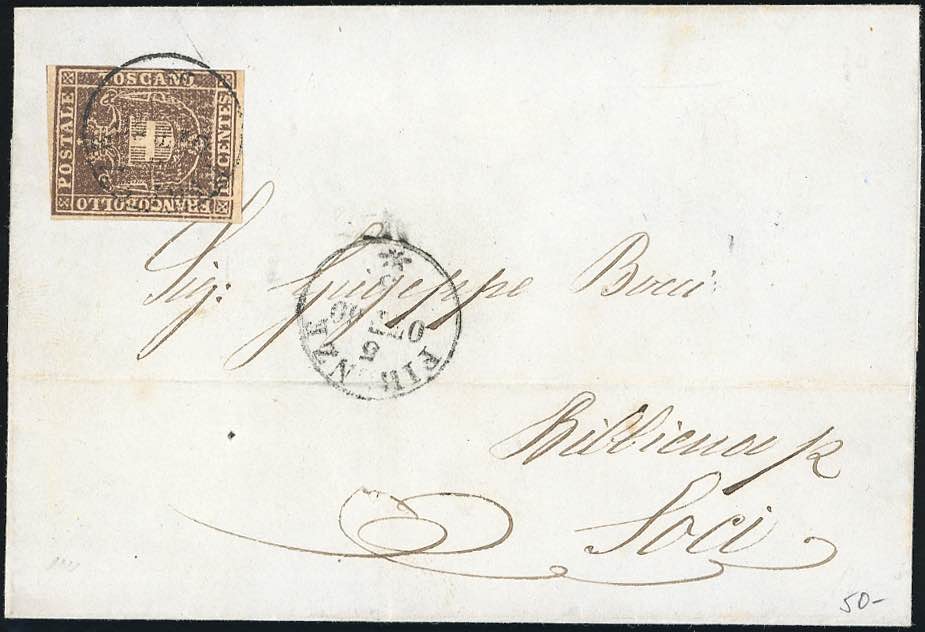 FRANCOBOLLO
POSTALE
TOSCANO
10 CENTES
FIRENZE
5
OTT 60
Sig: Giuseppe Bocci
Bibbiena p
Soci
50-